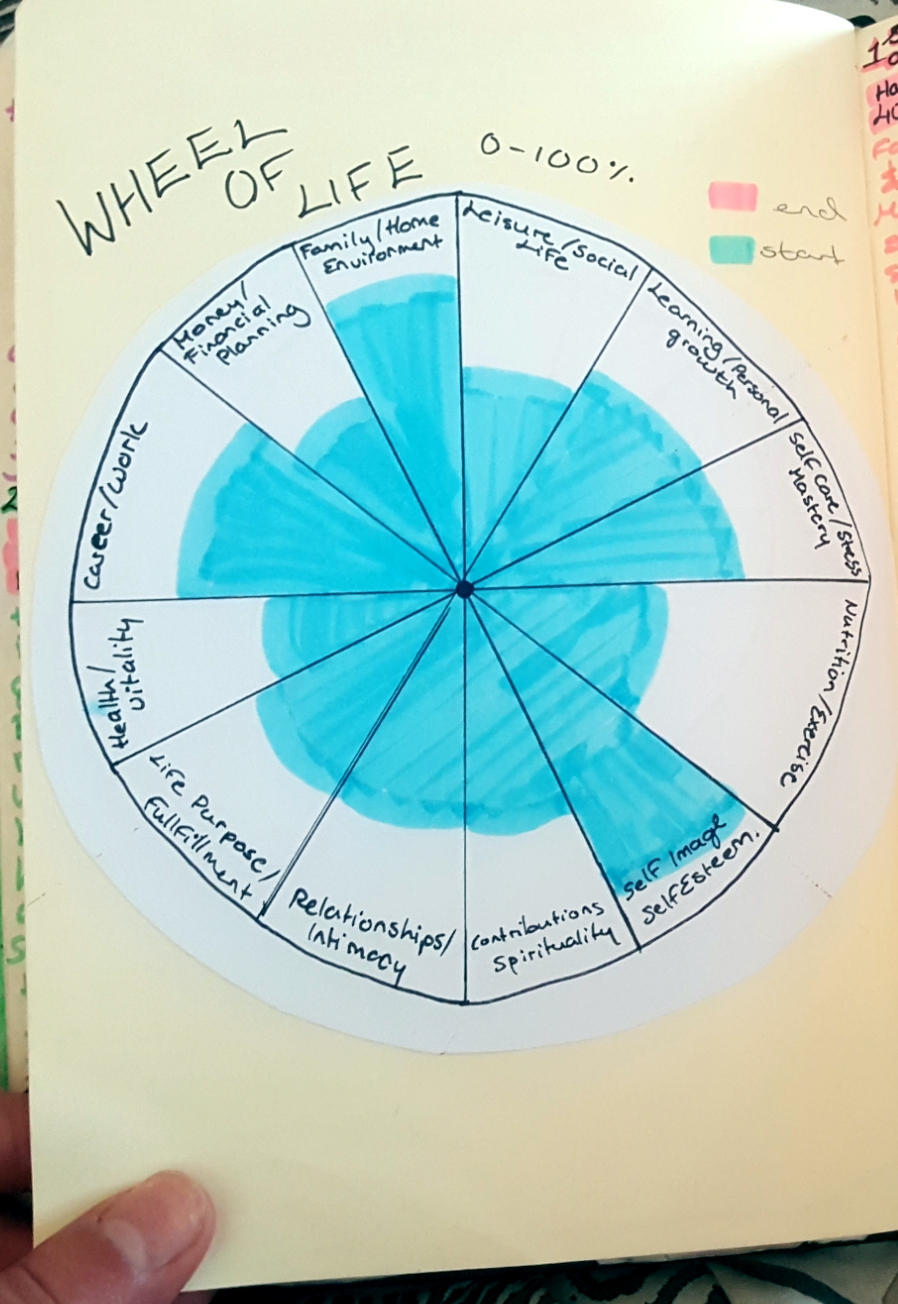 WHEEL
OF
LIFE
0-100%.
end
start
Leisure/Social
Life
Learning/Personal
growth
Self care/stress
Mastery
Nutrition/Exercise
Self Image
Self Esteem.
Contributions
Spirituality
Relationships/
Intimacy
Life Purpose/
Fullfillment
Health/
Vitality
Career/Work
Money/
Financial
Planning
Family/Home
Environment